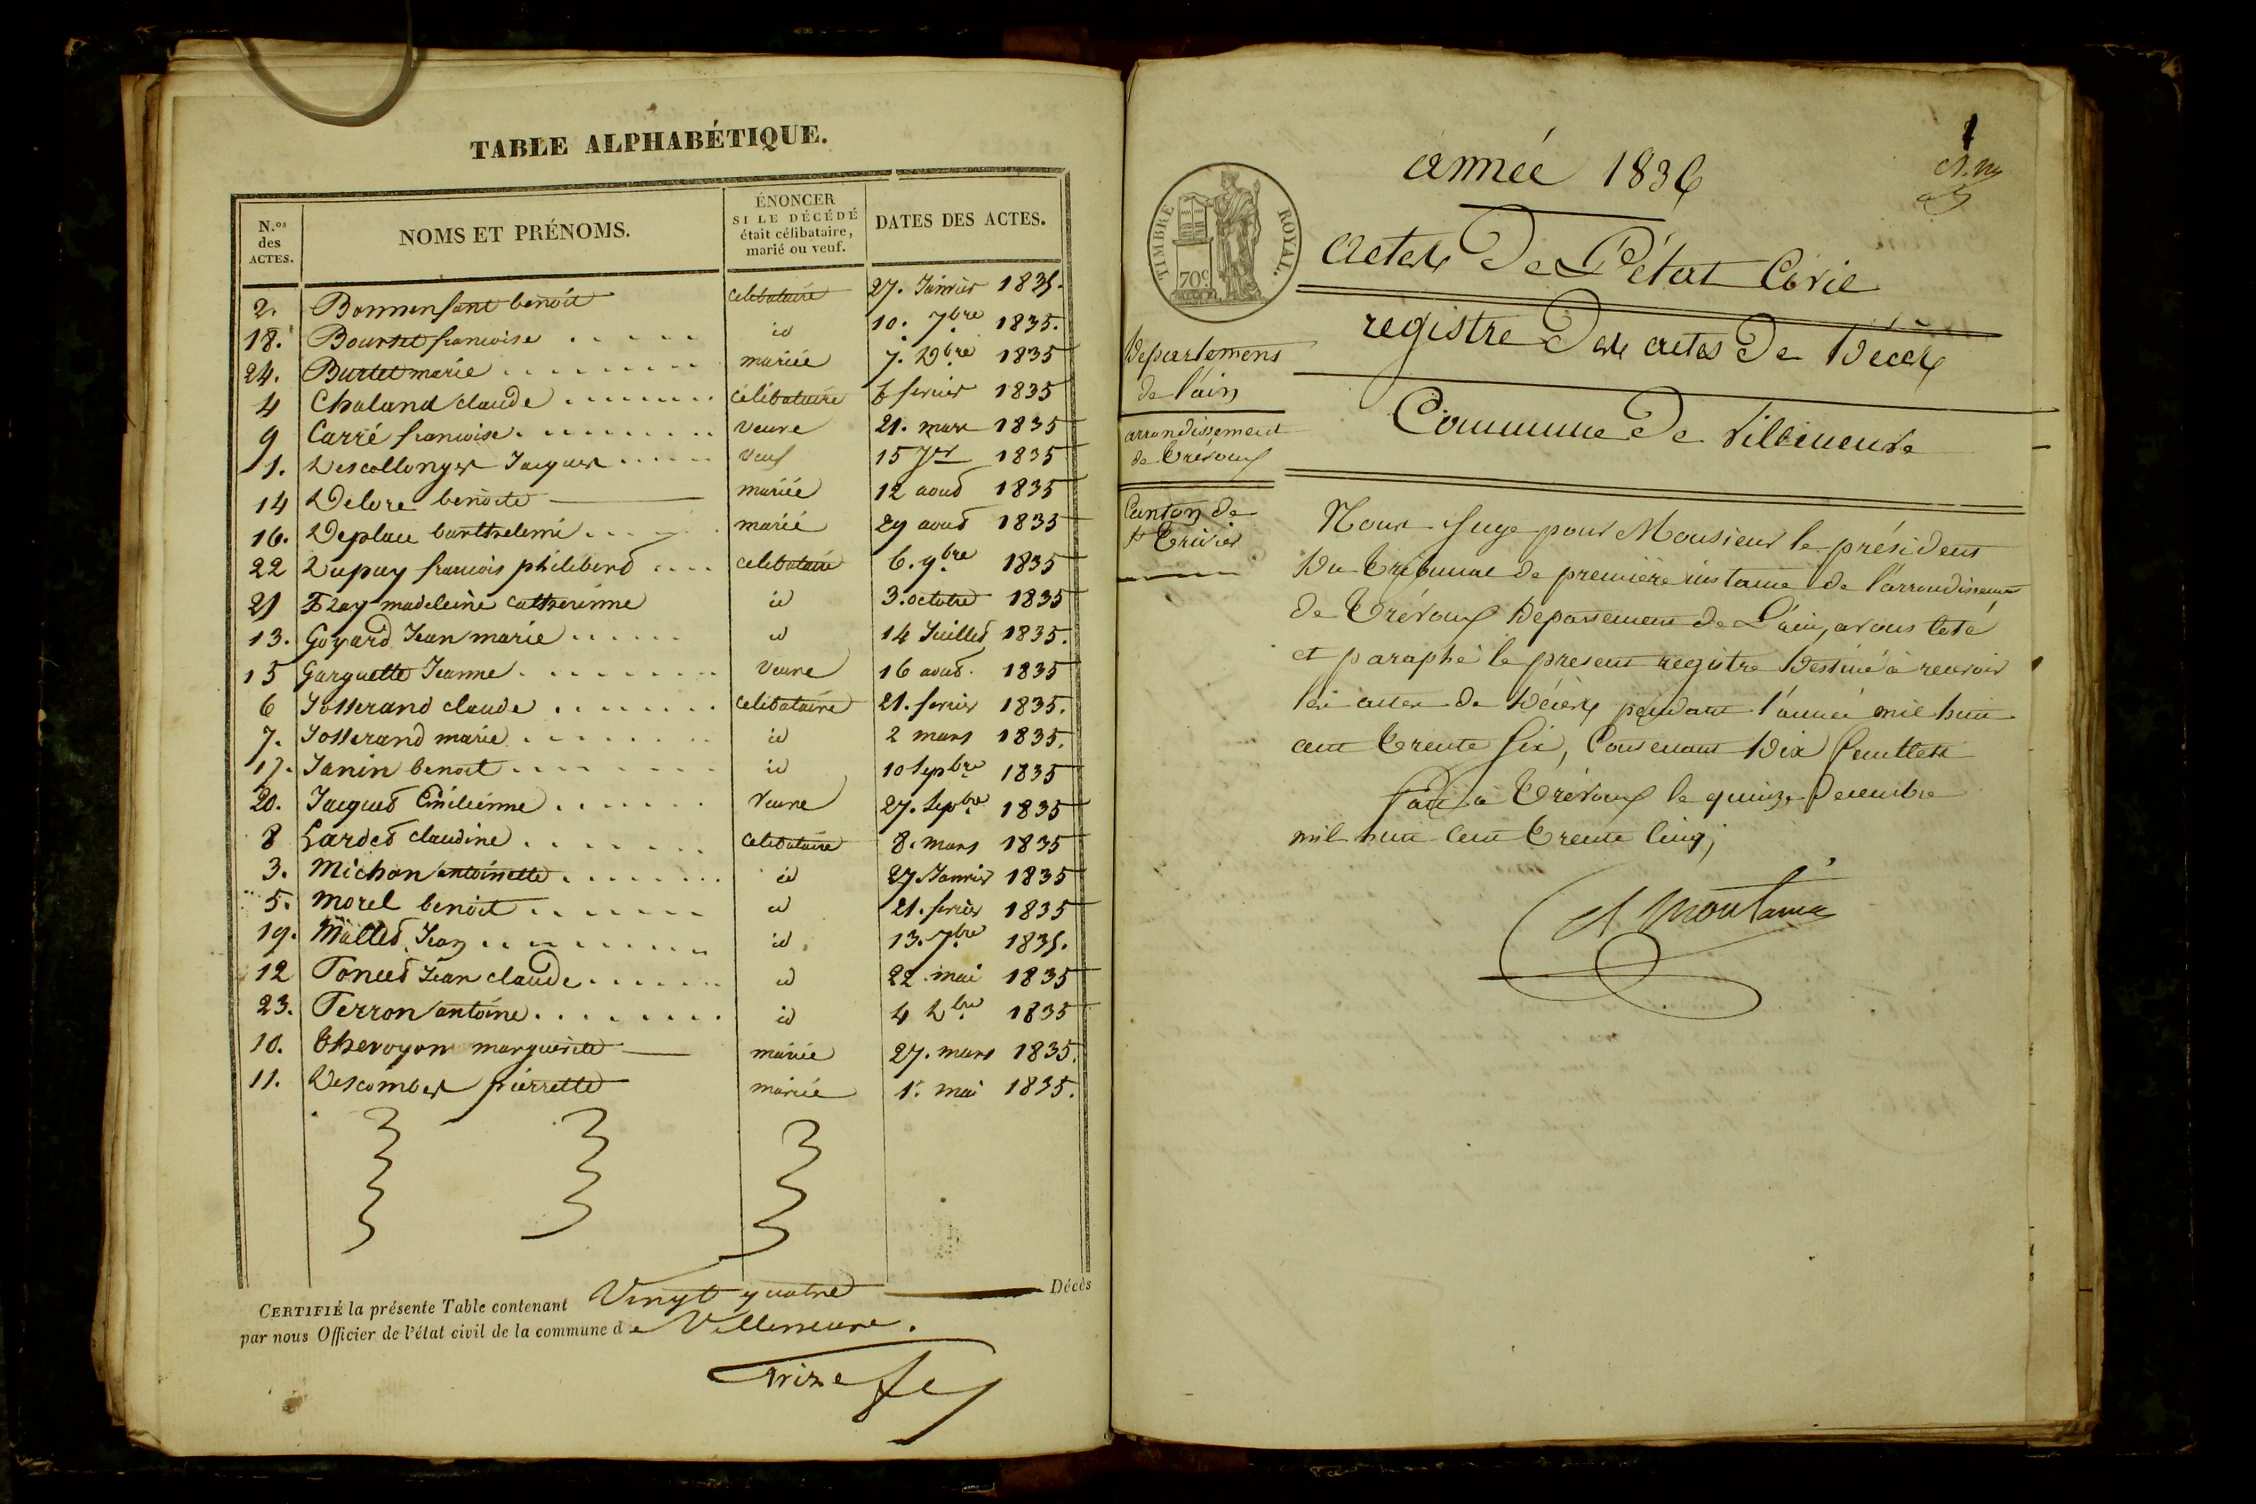 TABLE ALPHABÉTIQUE.
N.os des ACTES. NOMS ET PRÉNOMS. ÉNONCER SI LE DÉCÉDÉ était célibataire, marié ou veuf. DATES DES ACTES.
2. Bonnenfant benoit celibataire 27. Janvier 1835.
18. Bourset francoise id 10. 7bre 1835.
24. Burtet marie mariée 7. Xbre 1835
4 Chaland claude célibataire 6 fevrier 1835
9 Carré francoise veuve 21. mars 1835
1. Descollonges Jacques veuf 15 Jer 1835
14 Delore benoite mariée 12 aout 1835
16. Deplace barthelemi marié 29 aout 1835
22 Dupuy francois philibert celibataire 6. 9bre 1835
21 Fray madeleine catherinne id 3. octobre 1835
13. Goyard Jean marie id 14 Juillet 1835.
15 Garguette Jeanne veuve 16 aout. 1835
6 Josserand claude celibataire 21. fevrier 1835.
7. Josserand marie id 2 mars 1835.
17. Janin benoit id 10 sepbre 1835
20. Jacquet Emilienne veuve 27. sepbre 1835
8 Lardet claudine celibataire 8. mars 1835
3. Michon antoinette id 27 Janvier 1835
5. Morel benoit id 21. fevrier 1835
19. Mallet Jean id 13. 7bre 1835.
12 Poncet Jean claude id 22. mai 1835
23. Perron antoine id 4 Xbre 1835
10. Thevoyon marguerite mariée 27. mars 1835.
11. Vescombes pierrette mariée 1er mai 1835.
CERTIFIÉ la présente Table contenant Vingt quatre Décès
par nous Officier de l'état civil de la commune de Villeneuve.
1
année 1836
TIMBRE ROYAL.
70c
actes De L'état Civil
registre Des actes De Décès
Commune De Villeneuve
Departement
de l'ain
arrondissement
de Trévoux
Canton de
St Trivier
Nous Juge pour Monsieur le président
Du Tribunal de premiere instance de l'arrondissement
de Trévoux Departement de L'ain, avons coté
et paraphé le present registre Destiné à recevoir
les actes de Décès pendant l'année mil huit
cent trente six, Contenant Dix feuillets
fait à Trévoux le quinze Decembre
mil huit cent trente cinq,